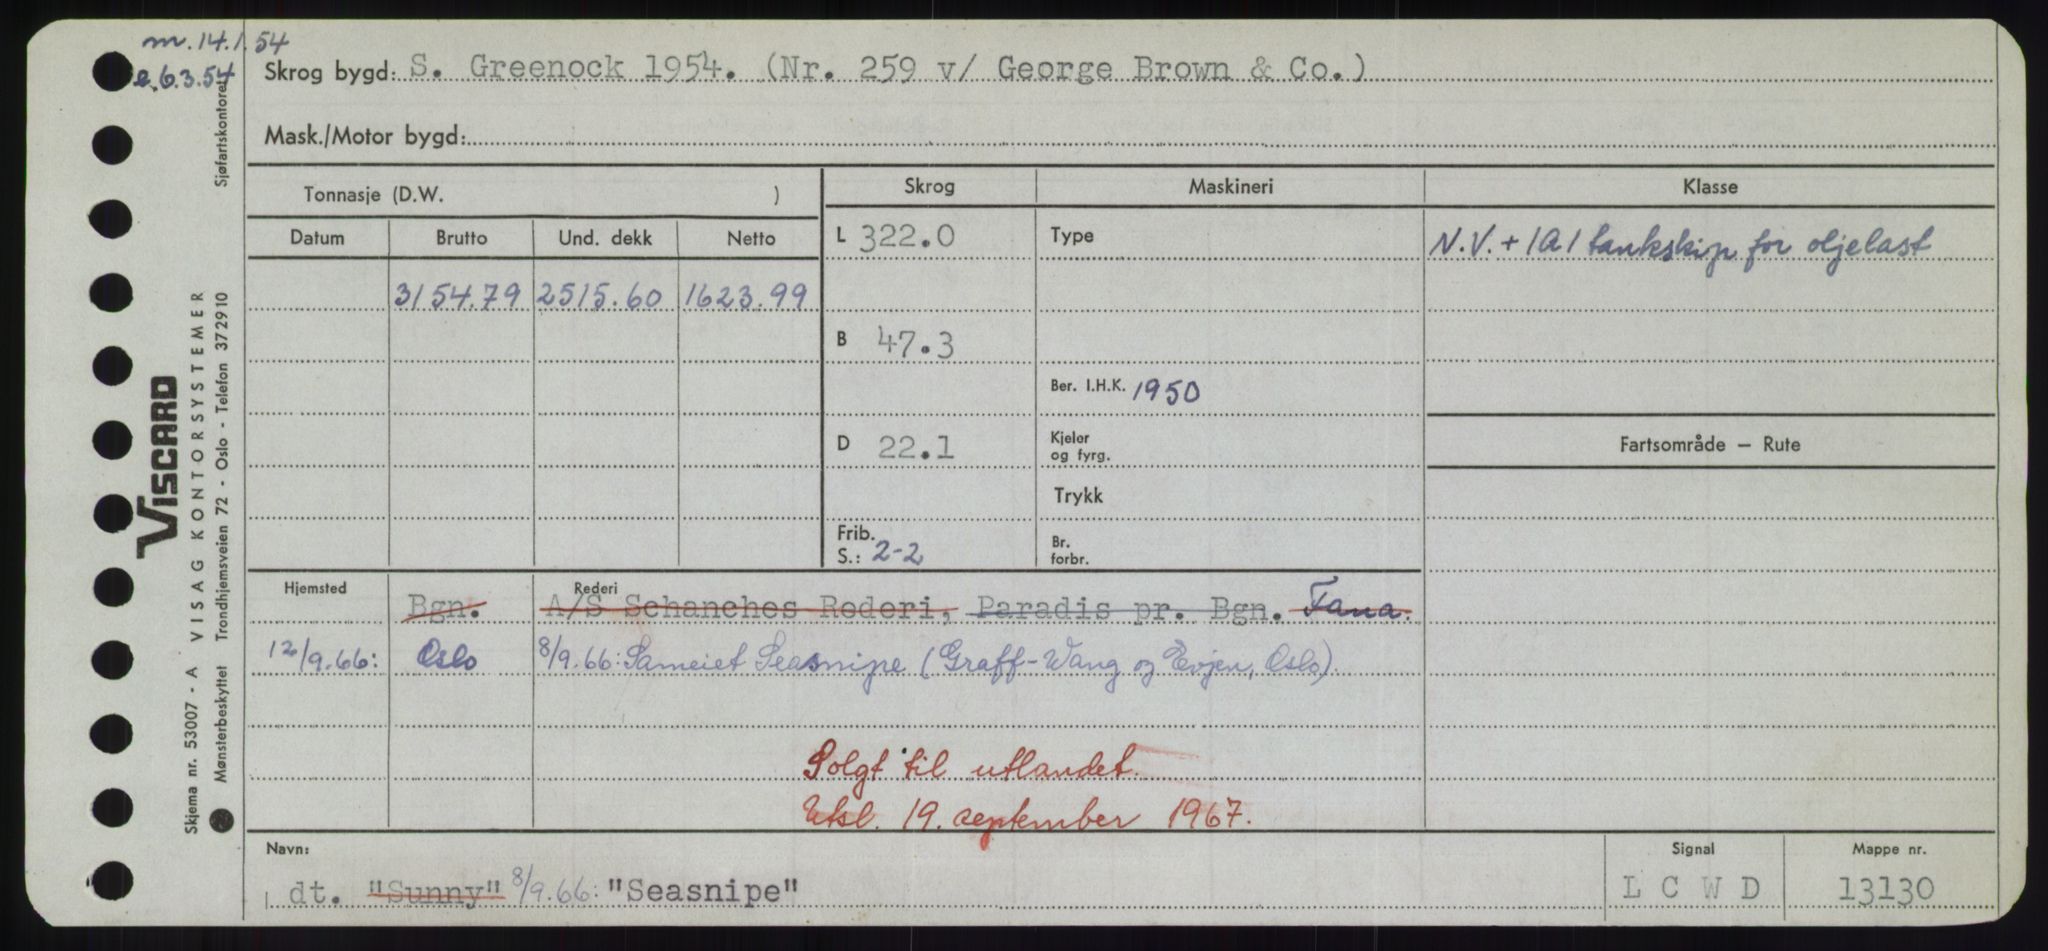 m. 14.1.54
e. 6.3.54
Skrog bygd: S. Greenock 1954. (Nr. 259 v/ George Brown & Co.)
Mask./Motor bygd:
Tonnasje (D.W. )
Datum Brutto Und. dekk Netto
3154.79 2515.60 1623.99
Skrog Maskineri Klasse
L 322.0 Type N.V. + 1A1 tankskip for oljelast
B 47.3
Ber. I.H.K. 1950
D 22.1 Kjeler og fyrg. Fartsområde — Rute
Trykk
Frib. S.: 2-2 Br. forbr.
Hjemsted Rederi
Bgn. A/S Schanches Rederi, Paradis pr. Bgn. Fana.
12/9.66: Oslo 8/9.66: Sameiet Seasnipe (Graff-Wang og Evjen, Oslo).
Solgt til utlandet.
Utsl. 19. september 1967.
Navn: Signal Mappe nr.
dt. "Sunny" 8/9.66: "Seasnipe" L C W D 13130
Skjema nr. 53007 - A VISAG KONTORSYSTEMER Sjøfartskontoret
Mønsterbeskyttet Trondhjemsveien 72 - Oslo - Telefon 372910
VISCARD